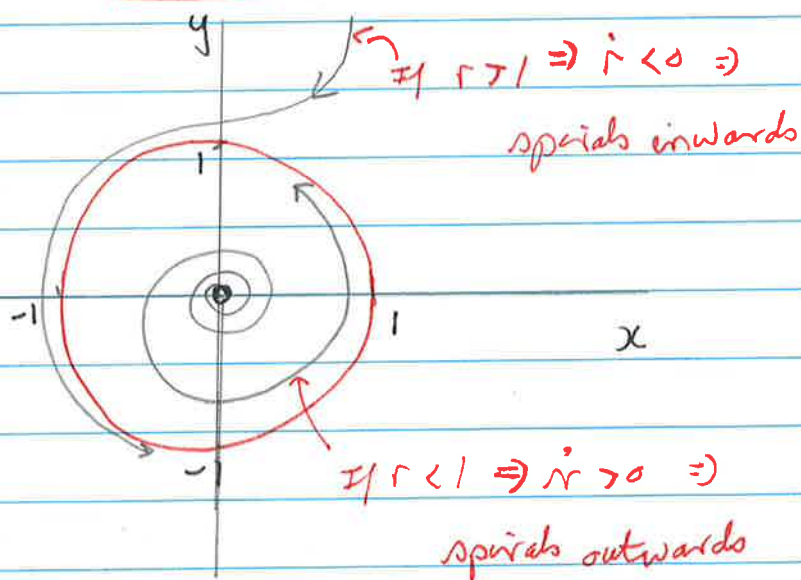 y
If r > 1 ⇒ ṙ < 0 ⇒
spirals inwards
1
-1
1
x
-1
If r < 1 ⇒ ṙ > 0 ⇒
spirals outwards